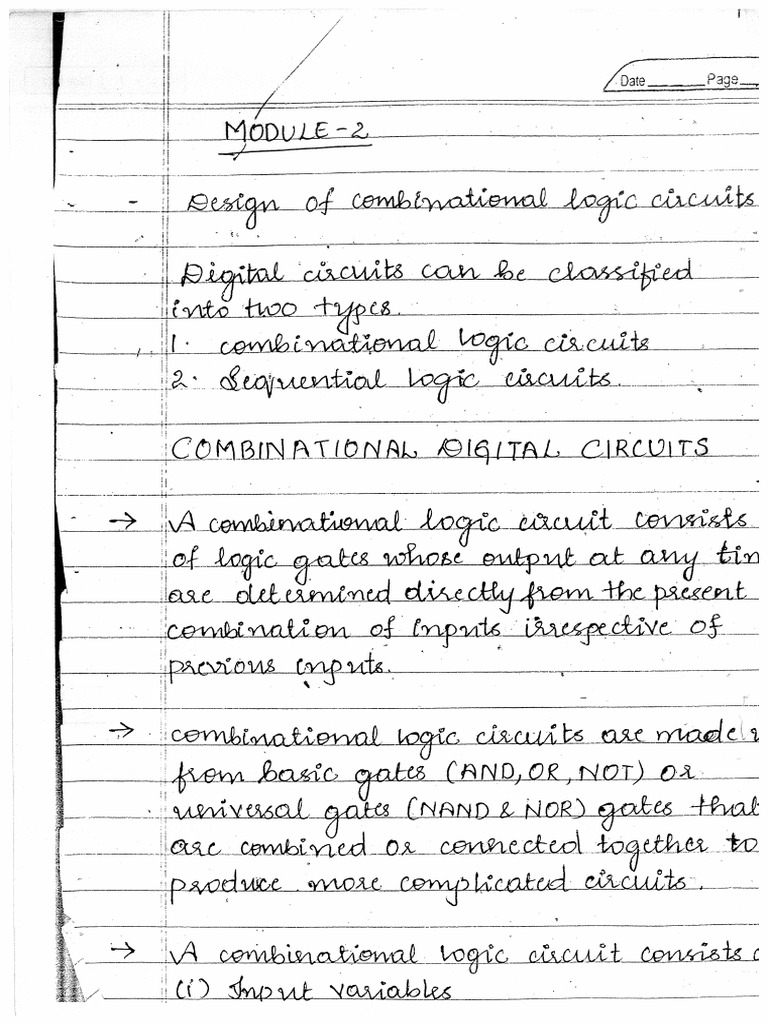 Date Page
MODULE-2
Design of combinational logic circuits
Digital circuits can be classified
into two types.
1. combinational logic circuits
2. Sequential logic circuits.
COMBINATIONAL DIGITAL CIRCUITS
→ A combinational logic circuit consists
of logic gates whose output at any tim
are determined directly from the present
combination of inputs irrespective of
previous inputs.
→ combinational logic circuits are made
from basic gates (AND, OR, NOT) or
universal gates (NAND & NOR) gates that
are combined or connected together to
produce more complicated circuits.
→ A combinational logic circuit consists
(i) Input variables